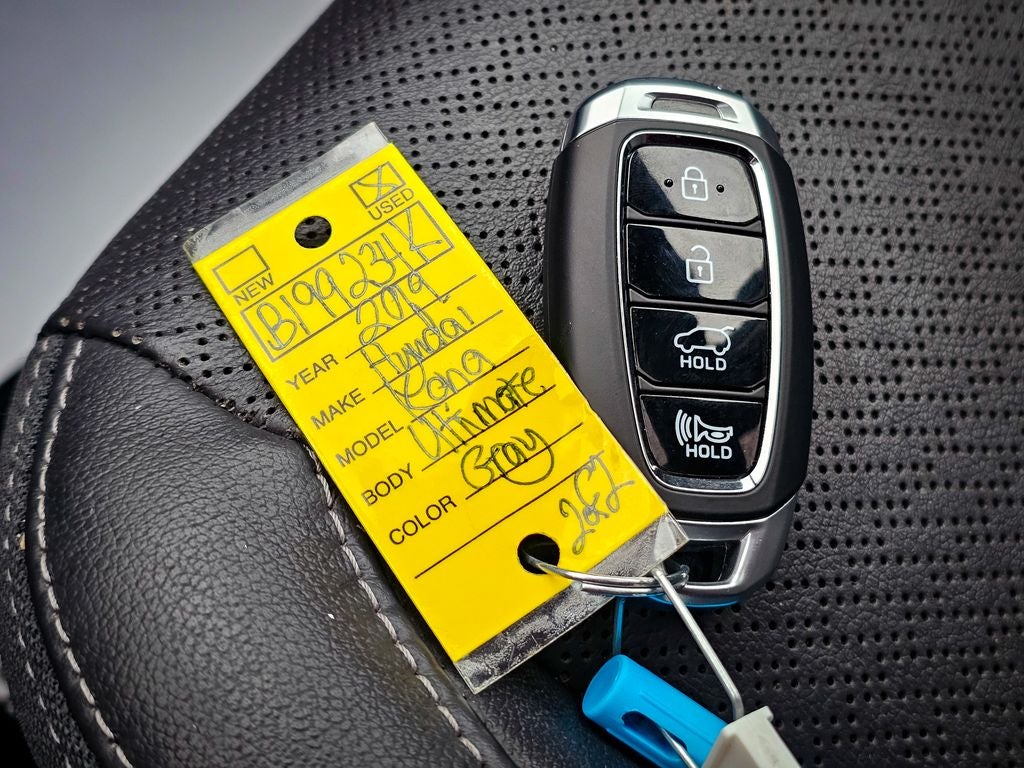 USED
NEW
B199234K
YEAR 2019
MAKE Hundai
MODEL Kona
BODY Ultimate
COLOR Gray
2 of 2
HOLD
HOLD